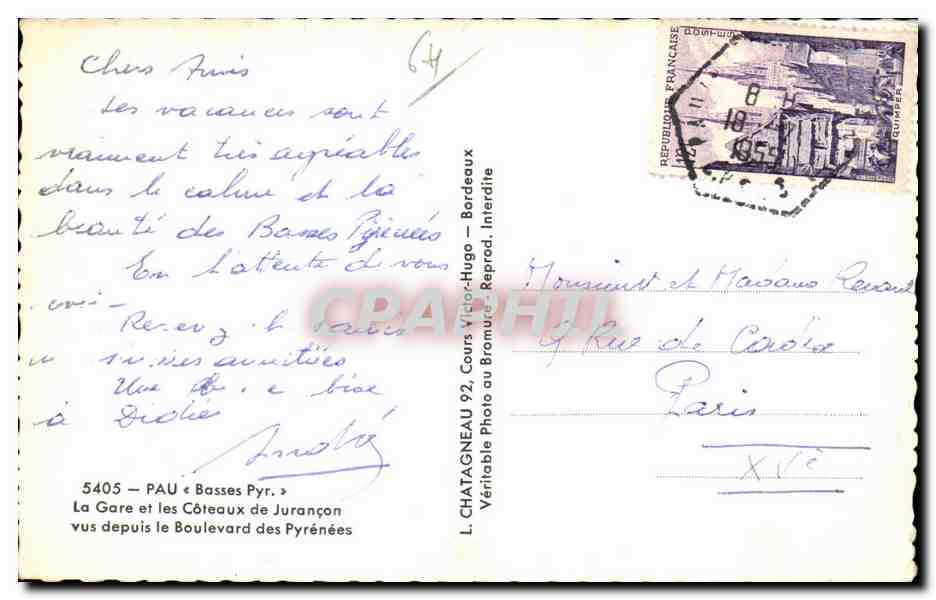 Chers Amis
Les vacances sont
vraiment très agréables
dans le calme et la
beauté des Basses Pyrénées
En l'attente de vous
Recevez
amitiés
Une bise
à Didier
André
5405 — PAU « Basses Pyr. »
La Gare et les Côteaux de Jurançon
vus depuis le Boulevard des Pyrénées
L. CHATAGNEAU 92, Cours Victor-Hugo — Bordeaux
Véritable Photo au Bromure - Reprod. Interdite
RÉPUBLIQUE FRANÇAISE
POSTES
QUIMPER
8 H
18
1955
et Madame
9 Rue de
Paris
XVe
CPAPHIL